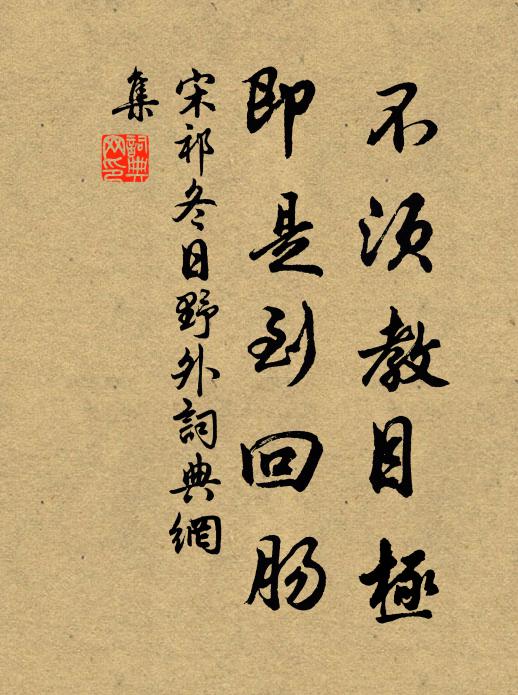 不须教目極
即是到回肠
宋祁冬日野外詞典網
集
詞典
网印